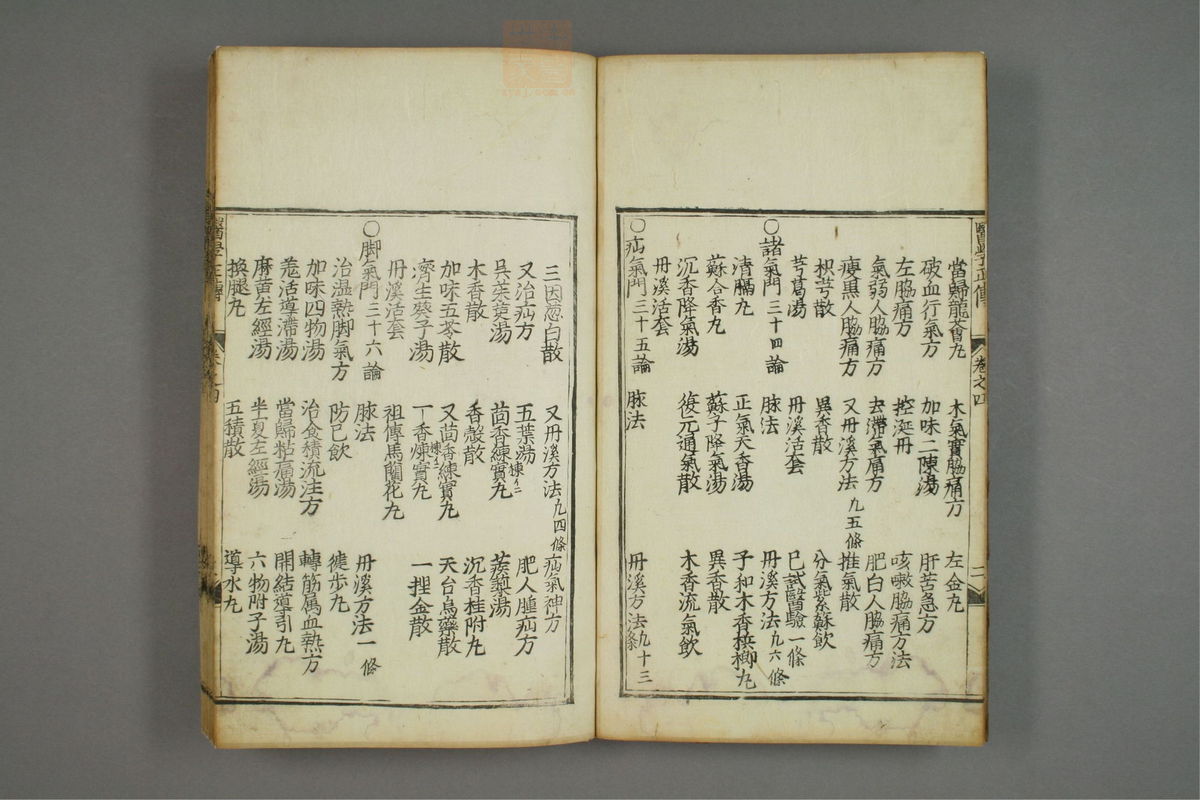 醫學正傳 卷之四 二
當歸龍薈九 木氣實脇痛方 左金九
破血行氣方 加味二陳湯 肝苦急方
左脇痛方 控涎丹 咳嗽脇痛方法
氣弱人脇痛方 去滯氣痛方 肥白人脇痛方
瘦黑人脇痛方 又丹溪方法九五條 推氣散
枳芎散 異香散 分氣紫蘇飲
芎葛湯 丹溪活套 已試醫驗一條
○諸氣門三十四論 脉法 丹溪方法九六條
清膈九 正氣天香湯 子和木香檳榔九
蘇合香九 蘇子降氣湯 異香散
沉香降氣湯 復元通氣散 木香流氣飲
丹溪活套
○疝氣門三十五論 脉法 丹溪方法九十三條
三因葱白散 又丹溪方法九四條 疝氣神方
又治疝方 五葉湯 肥人腫疝方
吳茱萸湯 茴香練實九 蒺藜湯
木香散 香殼散 沉香桂附九
加味五苓散 又茴香練實九 天台烏藥散
濟生葵子湯 一香煉實九 一捏金散
丹溪活套 祖傳馬藺花九
○脚氣門三十六論 脉法 丹溪方法一條
治濕熱脚氣方 防已飲 徤步九
加味四物湯 治食積流注方 轉筋屬血熱方
羌活導滯湯 當歸粘痛湯 開結導引九
麻黃左經湯 半夏左經湯 六物附子湯
換腿九 五積散 導水九
醫學正傳 卷之四